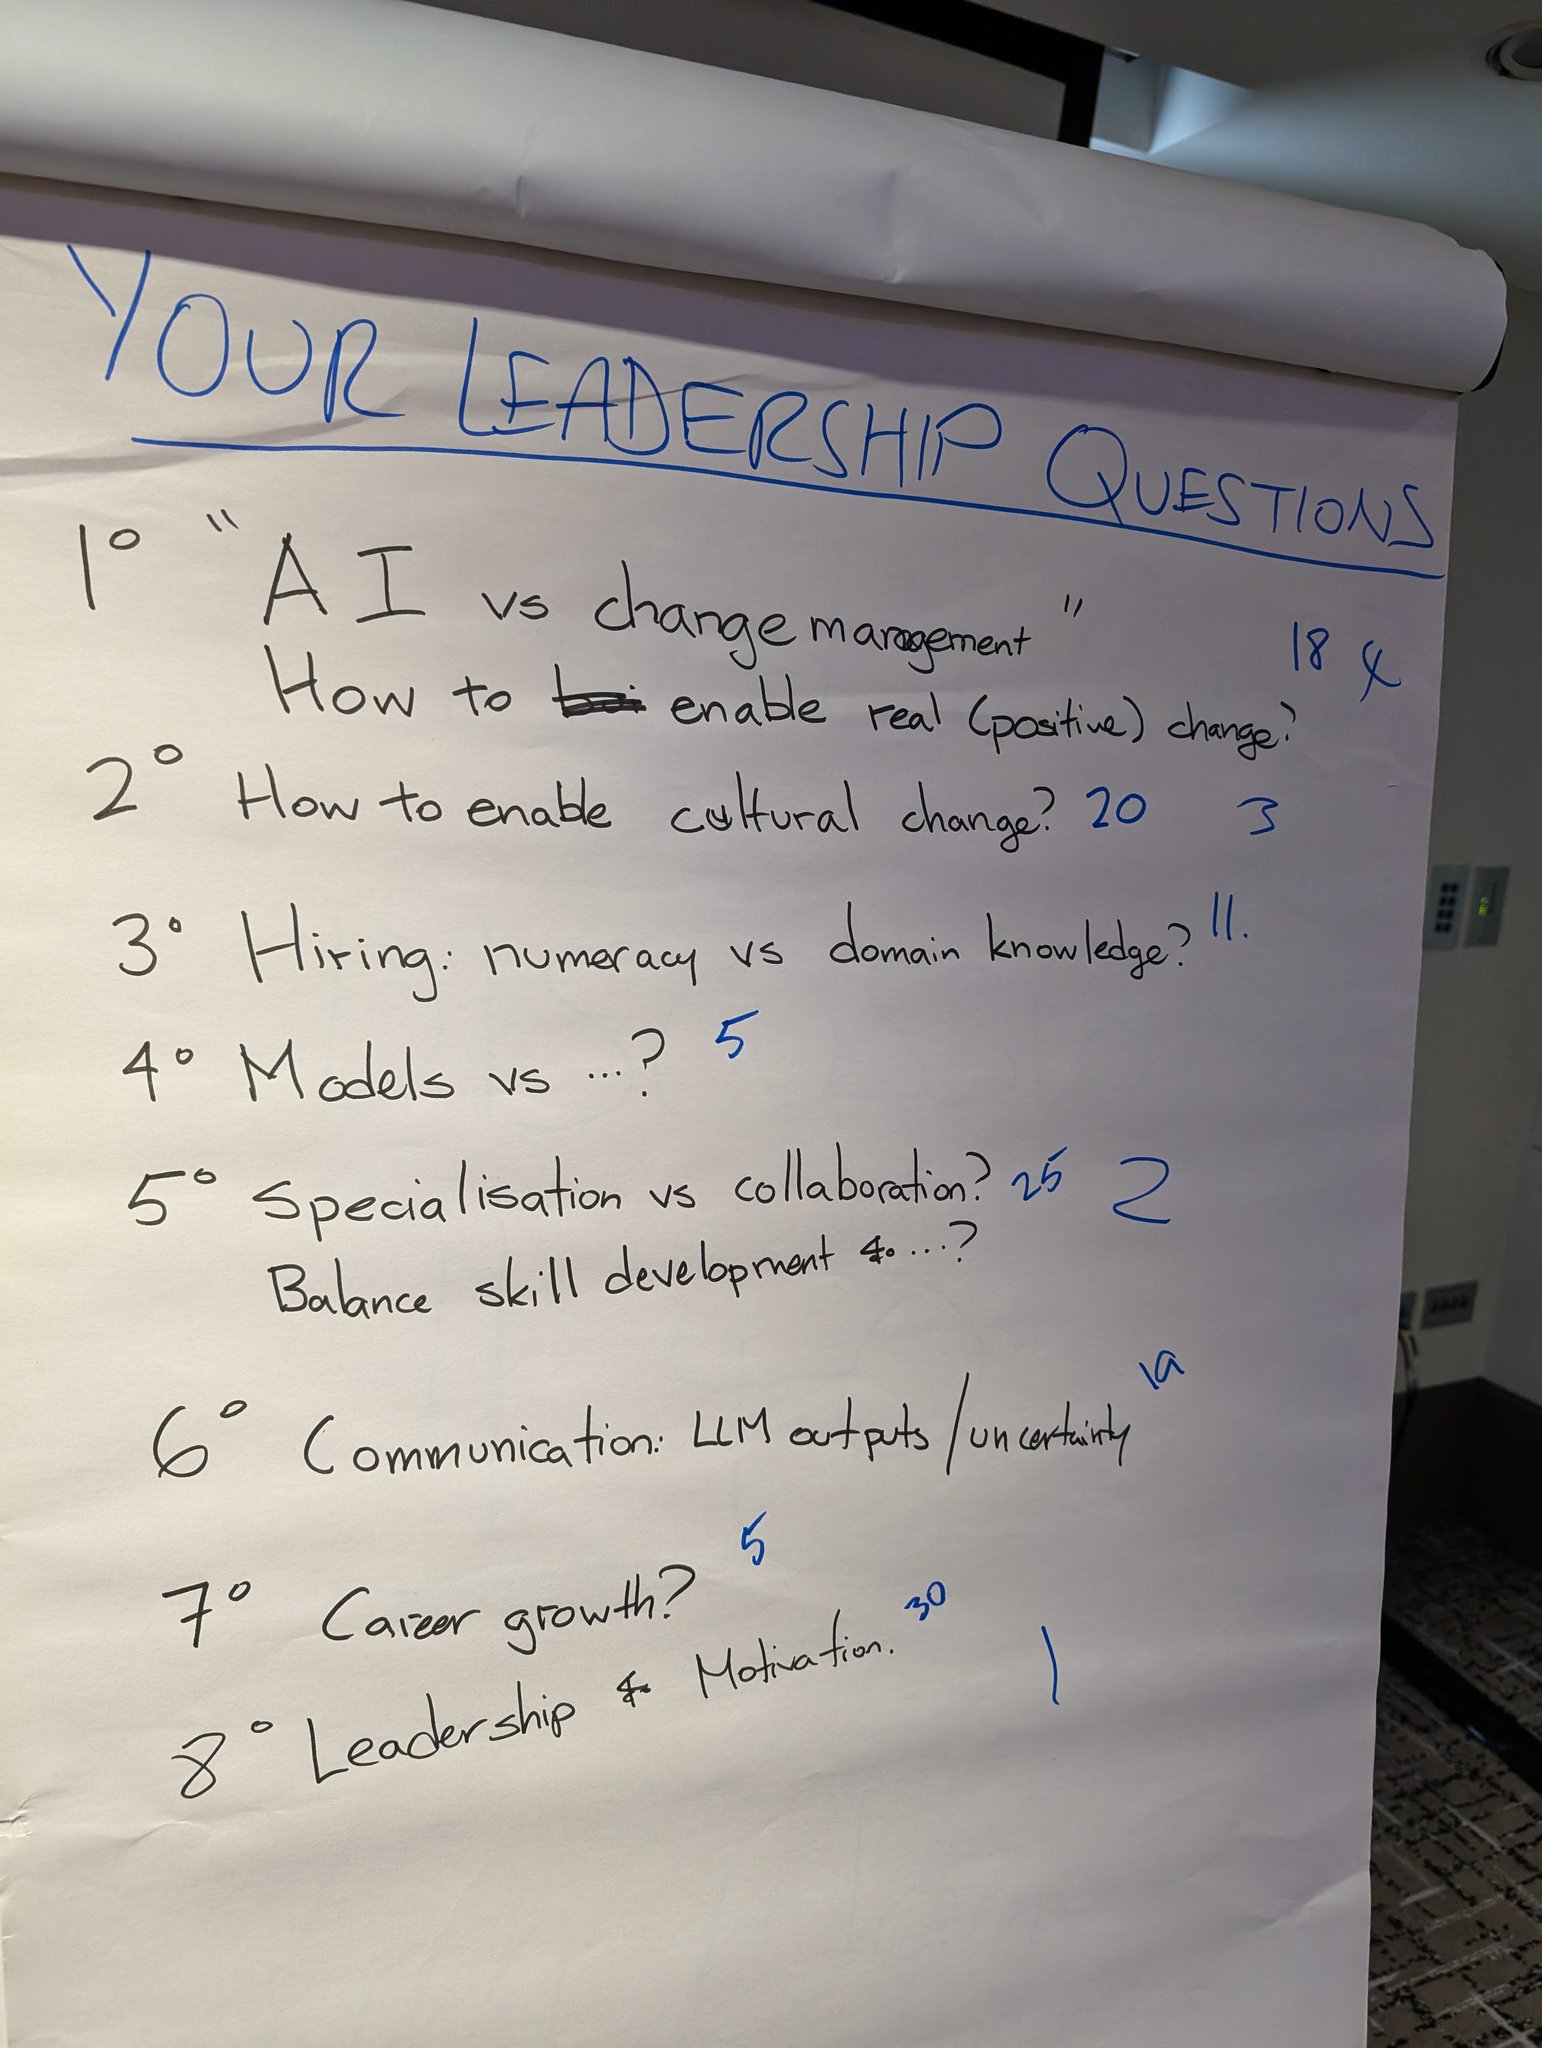 YOUR LEADERSHIP QUESTIONS
1° "AI vs change management"
18 4
How to enable real (positive) change?
2° How to enable cultural change? 20 3
3° Hiring: numeracy vs domain knowledge? 11.
4° Models vs ...? 5
5° Specialisation vs collaboration? 25 2
Balance skill development & ...?
6° Communication: LLM outputs / uncertainty
7° Career growth? 5
8° Leadership & Motivation. 30 1